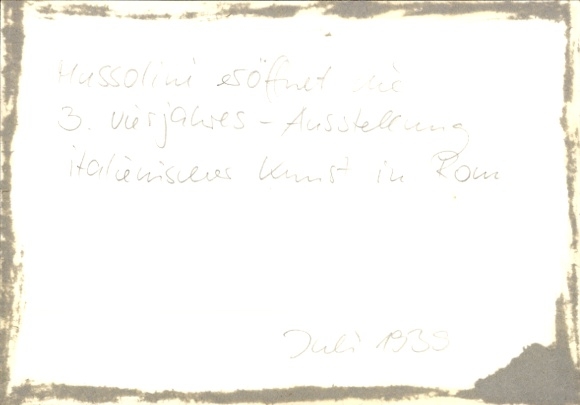 Mussolini eröffnet die
3. vierjahres-Ausstellung
italienischer Kunst in Rom
Juli 1939